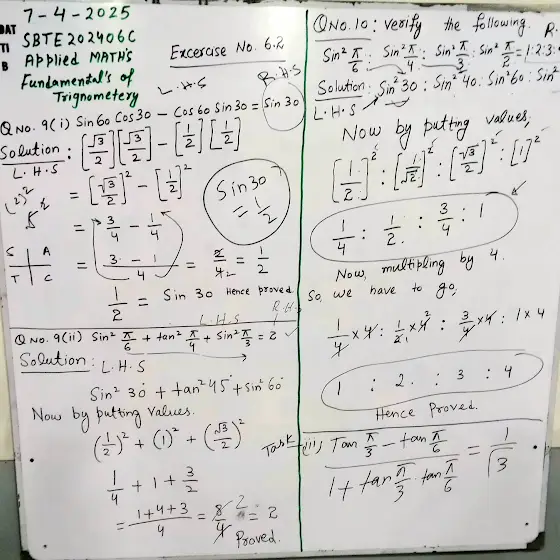 7-4-2025
DAT SBTE202406C
TI Applied MATH's
B Fundamental's of
Trignometery
Excercise No. 6.2
L.H.S R.H.S
Q No. 9(i) Sin60 Cos30 - Cos60 Sin30 = Sin30
Solution: [√3/2][√3/2] - [1/2][1/2]
L.H.S
= [√3/2]² - [1/2]²
= 3/4 - 1/4
= 3-1/4 = 2/4 = 1/2
S A
T C
Sin30 = 1/2
1/2 = Sin 30 Hence proved
L.H.S R.H.S
Q No. 9(ii) Sin² π/6 + tan² π/4 + Sin² π/3 = 2
Solution: L.H.S
Sin² 30° + tan² 45° + sin² 60°
Now by putting values.
(1/2)² + (1)² + (√3/2)²
1/4 + 1 + 3/2
= 1+4+3/4 = 8/4 2 = 2
Proved.
Q No. 10: verify the following. R.
Sin² π/6 : Sin² π/4 : Sin² π/3 : Sin² π/2 = 1:2:3:
Solution: Sin² 30 : Sin² 40 : Sin² 60 : Sin²
L.H.S
Now by putting values,
[1/2]² : [1/√2]² : [√3/2]² : [1]²
1/4 : 1/2 : 3/4 : 1
Now, multipling by 4.
So, we have to go,
1/4 x 4 : 1/2 x 4 : 3/4 x 4 : 1 x 4
1 : 2 : 3 : 4
Hence Proved.
Task (iii) Tan π/3 - tan π/6 / 1 + tan π/3 . tan π/6 = 1/√3